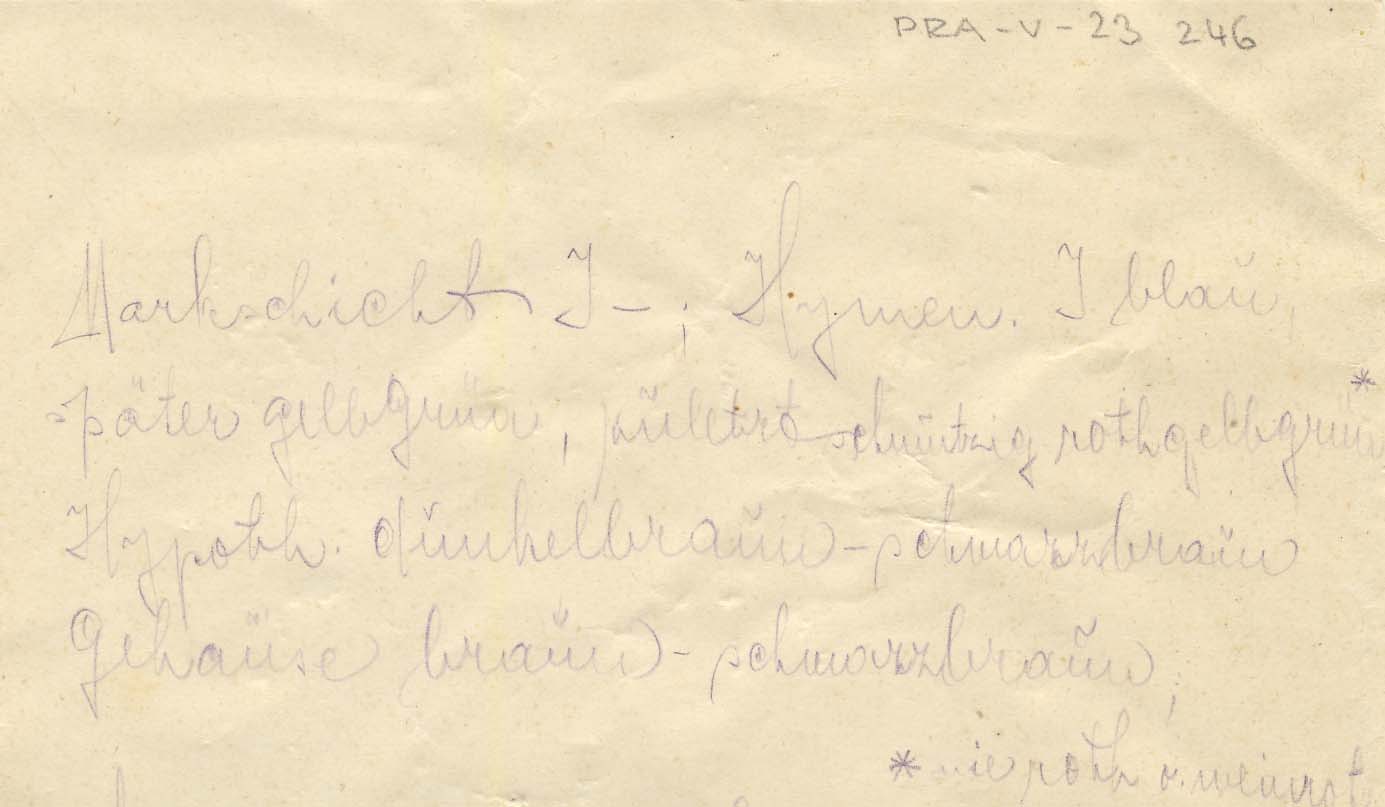 PRA-V-23 246
Markschicht J-; Hymen. J blau,
später gelbgrün, zuletzt schmutzig rothgelbgrün*
Hypoth. dunkelbraun-schwarzbraun
Gehäuse braun-schwarzbraun;
* nie roth o.